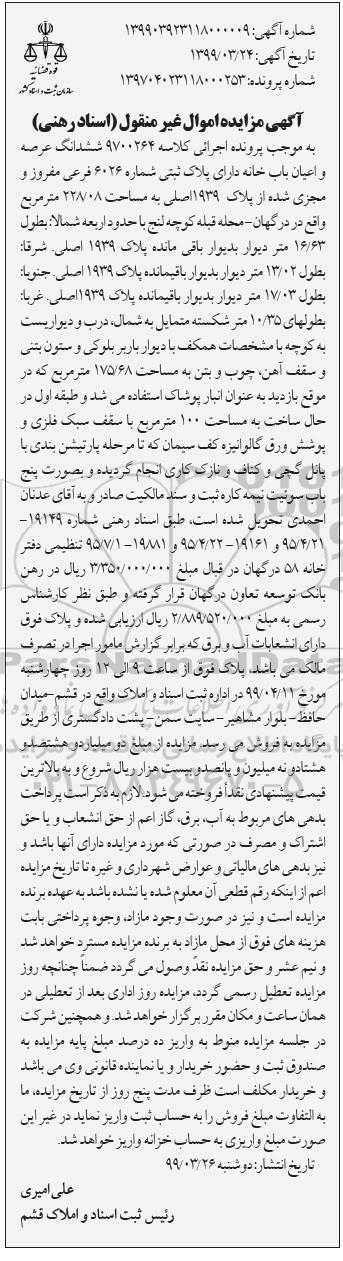 شماره آگهی: ۱۳۹۹۰۳۹۲۳۱۱۸۰۰۰۰۰۹
تاریخ آگهی: ۱۳۹۹/۰۳/۲۴
شماره پرونده: ۱۳۹۷۰۴۰۲۳۱۱۸۰۰۰۲۵۳
قوه قضائیه
سازمان ثبت و اسناد کشور
آگهی مزایده اموال غیر منقول (اسناد رهنی)
به موجب پرونده اجرائی کلاسه ۹۷۰۰۲۶۴ ششدانگ عرصه
و اعیان باب خانه دارای پلاک ثبتی شماره ۶۰۲۶ فرعی مفروز و
مجزی شده از پلاک ۱۹۳۹اصلی به مساحت ۲۲۸/۰۸ مترمربع
واقع در درگهان-محله قبله کوچه لنج با حدود اربعه شمالا: بطول
۱۶/۶۳ متر دیوار بدیوار باقی مانده پلاک ۱۹۳۹ اصلی. شرقا:
بطول ۱۳/۰۲ متر دیوار بدیوار باقیمانده پلاک ۱۹۳۹ اصلی. جنوبا:
بطول ۱۷/۰۳ متر دیوار بدیوار باقیمانده پلاک ۱۹۳۹اصلی. غربا:
بطولهای ۱۰/۳۵ متر شکسته متمایل به شمال، درب و دیواریست
به کوچه با مشخصات همکف با دیوار باربر بلوکی و ستون بتنی
و سقف آهن، چوب و بتن به مساحت ۱۷۵/۶۸ مترمربع که در
موقع بازدید به عنوان انبار پوشاک استفاده می شد و طبقه اول در
حال ساخت به مساحت ۱۰۰ مترمربع با سقف سبک فلزی و
پوشش ورق گالوانیزه کف سیمان که تا مرحله پارتیشن بندی با
پانل گچی و کناف و نازک کاری انجام گردیده و بصورت پنج
باب سوئیت نیمه کاره ثبت و سند مالکیت صادر و به آقای عدنان
احمدی تحویل شده است، طبق اسناد رهنی شماره ۱۹۱۴۹-
۹۵/۴/۲۱ و ۱۹۱۶۱-۹۵/۴/۲۲ و ۱۹۸۸۱-۹۵/۷/۱ تنظیمی دفتر
خانه ۵۸ درگهان در قبال مبلغ ۳/۳۵۰/۰۰۰/۰۰۰ ریال در رهن
بانک توسعه تعاون درگهان قرار گرفته و طبق نظر کارشناس
رسمی به مبلغ ۲/۸۸۹/۵۲۰/۰۰۰ ریال ارزیابی شده و پلاک فوق
دارای انشعابات آب و برق که برابر گزارش مامور اجرا در تصرف
مالک می باشد. پلاک فوق از ساعت ۹ الی ۱۲ روز چهارشنبه
مورخ ۹۹/۰۴/۱۱ در اداره ثبت اسناد و املاک واقع در قشم-میدان
حافظ-بلوار مشاهیر-سایت سمن-پشت دادگستری از طریق
مزایده به فروش می رسد. مزایده از مبلغ دو میلیاردو هشتصدو
هشتادو نه میلیون و پانصدو بیست هزار ریال شروع و به بالاترین
قیمت پیشنهادی نقداً فروخته می شود. لازم به ذکر است پرداخت
بدهی های مربوط به آب، برق، گاز اعم از حق انشعاب و یا حق
اشتراک و مصرف در صورتی که مورد مزایده دارای آنها باشد و
نیز بدهی های مالیاتی و عوارض شهرداری و غیره تا تاریخ مزایده
اعم از اینکه رقم قطعی آن معلوم شده یا نشده باشد به عهده برنده
مزایده است و نیز در صورت وجود مازاد، وجوه پرداختی بابت
هزینه های فوق از محل مازاد به برنده مزایده مسترد خواهد شد
و نیم عشر و حق مزایده نقدً وصول می گردد ضمناً چنانچه روز
مزایده تعطیل رسمی گردد، مزایده روز اداری بعد از تعطیلی در
همان ساعت و مکان مقرر برگزار خواهد شد. و همچنین شرکت
در جلسه مزایده منوط به واریز ده درصد مبلغ پایه مزایده به
صندوق ثبت و حضور خریدار و یا نماینده قانونی وی می باشد
و خریدار مکلف است ظرف مدت پنج روز از تاریخ مزایده، ما
به التفاوت مبلغ فروش را به حساب ثبت واریز نماید در غیر این
صورت مبلغ واریزی به حساب خزانه واریز خواهد شد.
تاریخ انتشار: دوشنبه ۹۹/۰۳/۲۶
علی امیری
رئیس ثبت اسناد و املاک قشم